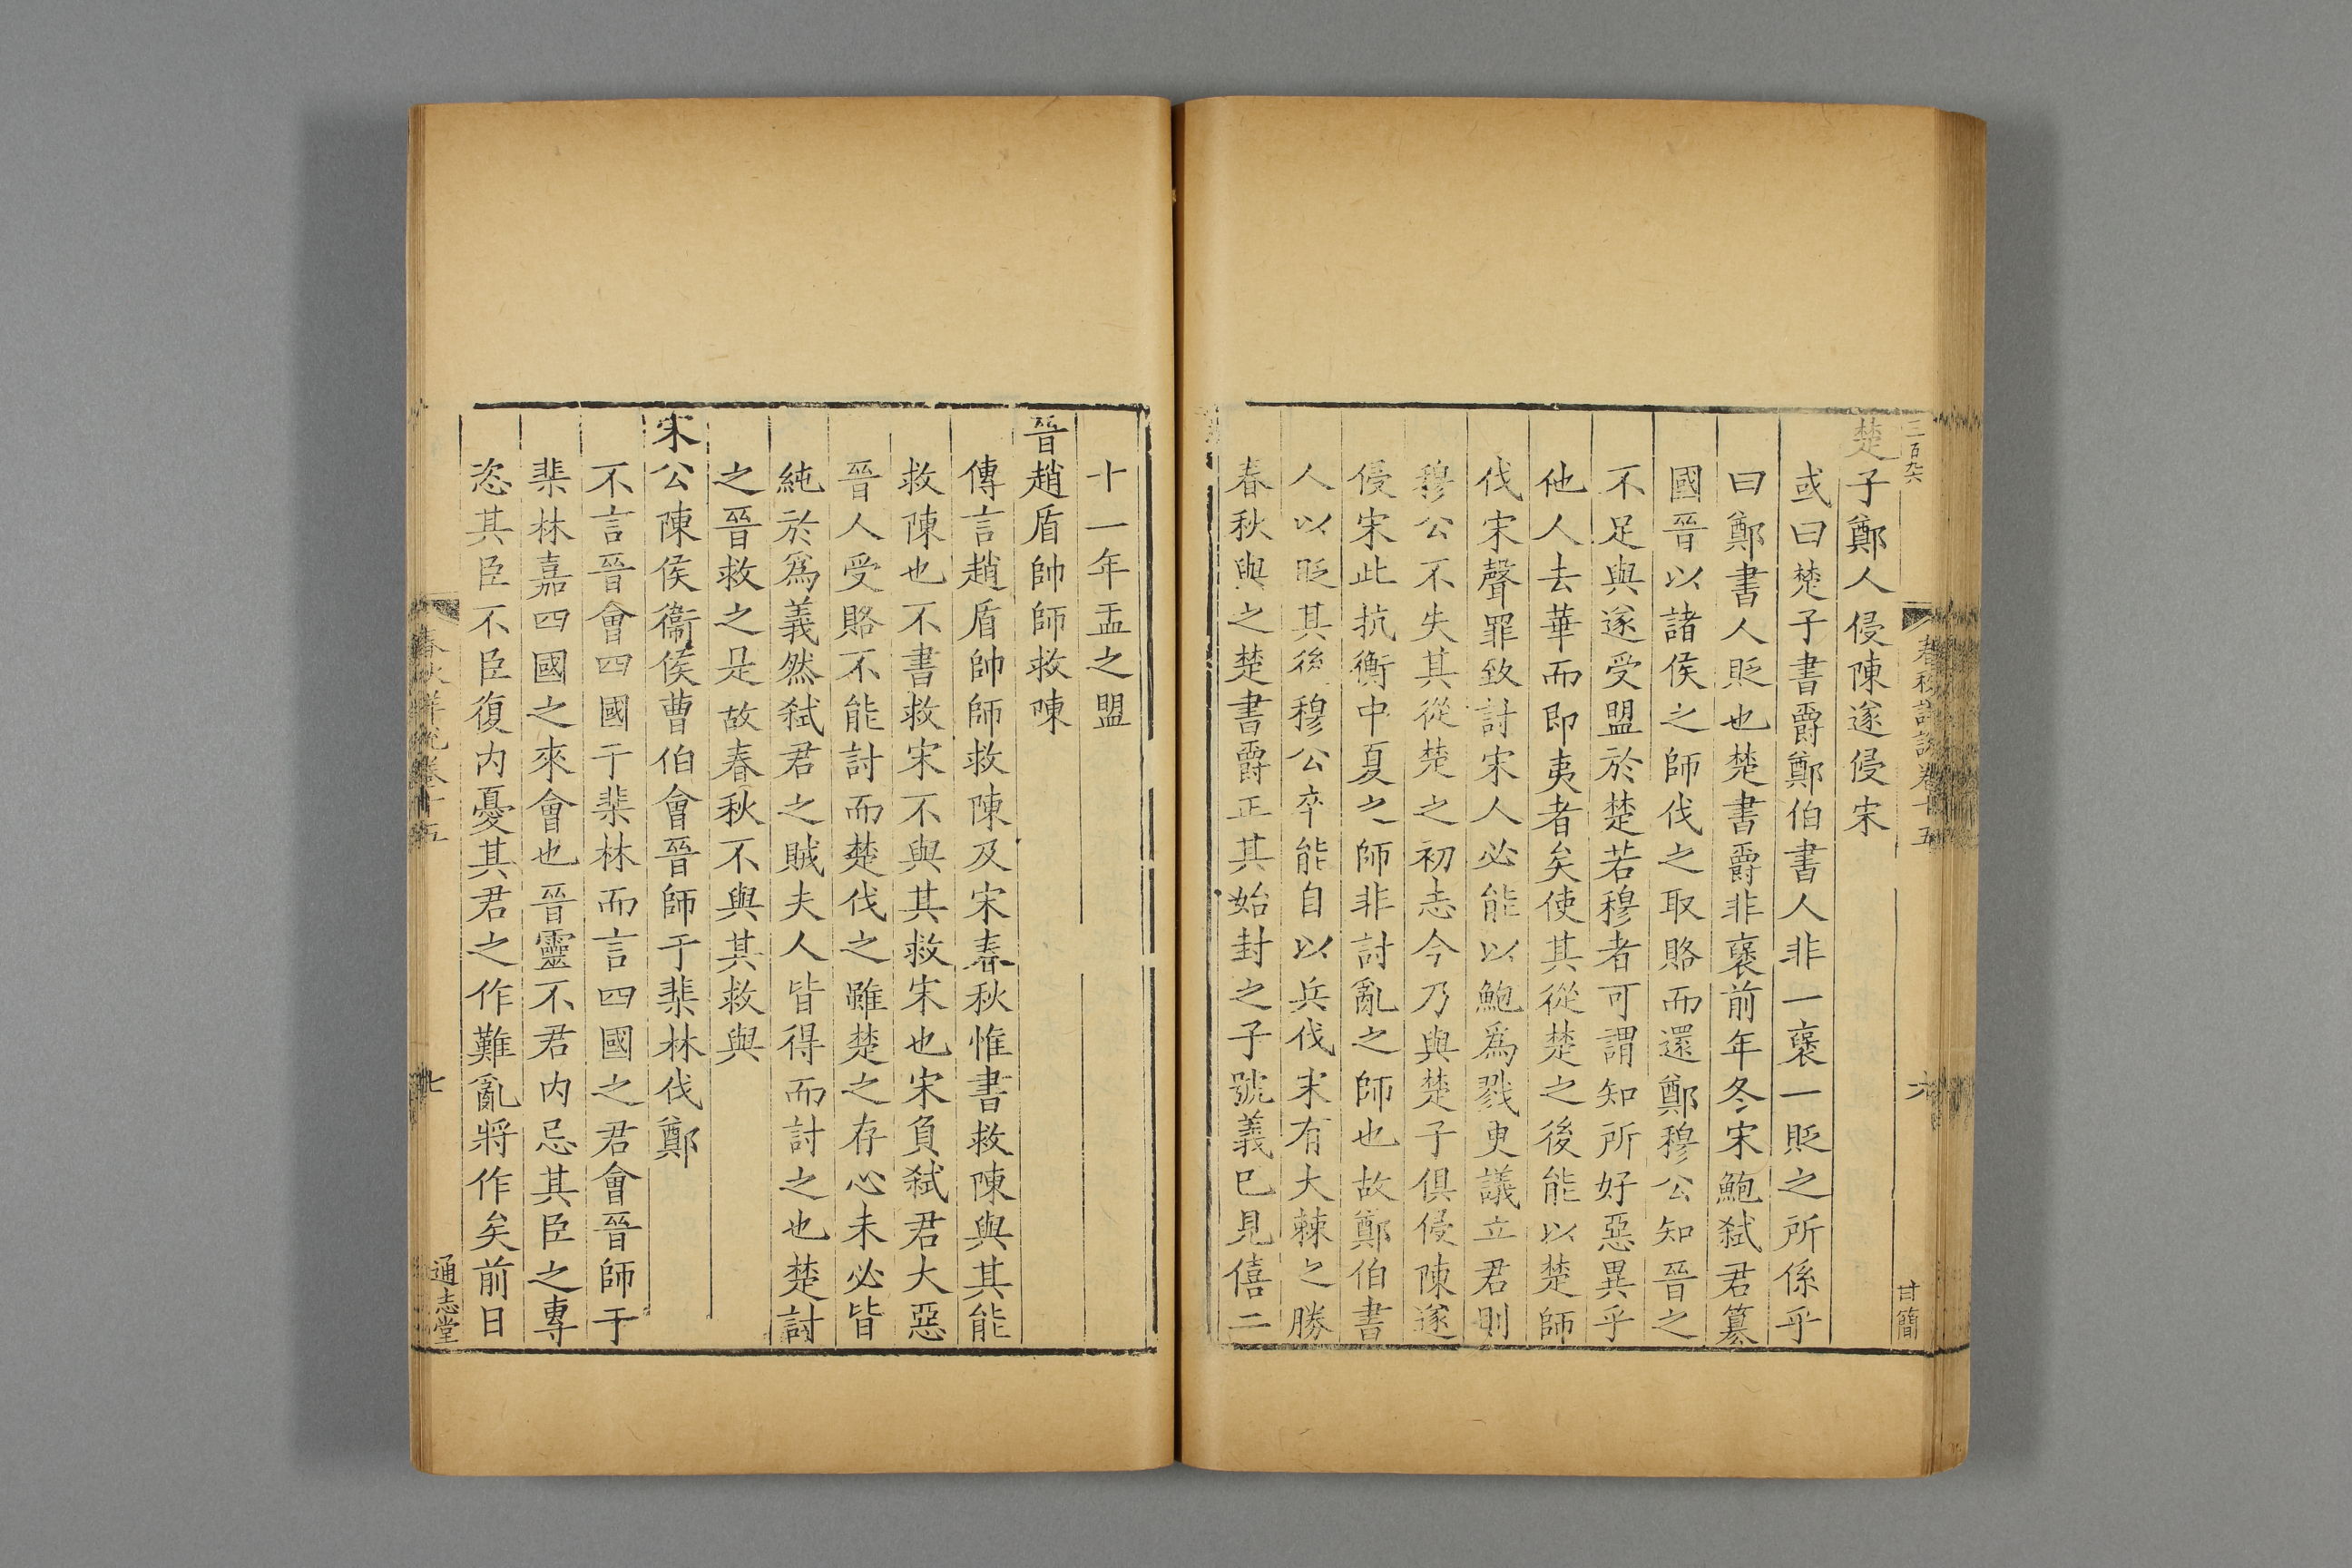 楚子鄭人侵陳遂侵宋
或曰楚子書爵鄭伯書人非一襃一貶之所係乎
曰鄭書人貶也楚書爵非襃前年冬宋鮑弑君簒
國晉以諸侯之師伐之取賂而還鄭穆公知晉之
不足與遂受盟於楚若穆者可謂知所好惡異乎
他人去華而即夷者矣使其從楚之後能以楚師
伐宋聲罪致討宋人必能以鮑爲戮更議立君則
穆公不失其從楚之初志今乃與楚子俱侵陳遂
侵宋此抗衡中夏之師非討亂之師也故鄭伯書
人以貶其後穆公卒能自以兵伐宋有大棘之勝
春秋與之楚書爵正其始封之子號義已見僖二
十一年盂之盟
晉趙盾帥師救陳
傳言趙盾帥師救陳及宋春秋惟書救陳與其能
救陳也不書救宋不與其救宋也宋負弑君大惡
晉人受賂不能討而楚伐之雖楚之存心未必皆
純於爲義然弑君之賊夫人皆得而討之也楚討
之晉救之是故春秋不與其救與
宋公陳侯衞侯曹伯會晉師于棐林伐鄭
不言晉會四國于棐林而言四國之君會晉師于
棐林嘉四國之來會也晉靈不君内忌其臣之專
恣其臣不臣復内憂其君之作難亂將作矣前日
春秋詳說卷十五
七
通志堂
三百九六
春秋詳說卷十五
六
甘簡